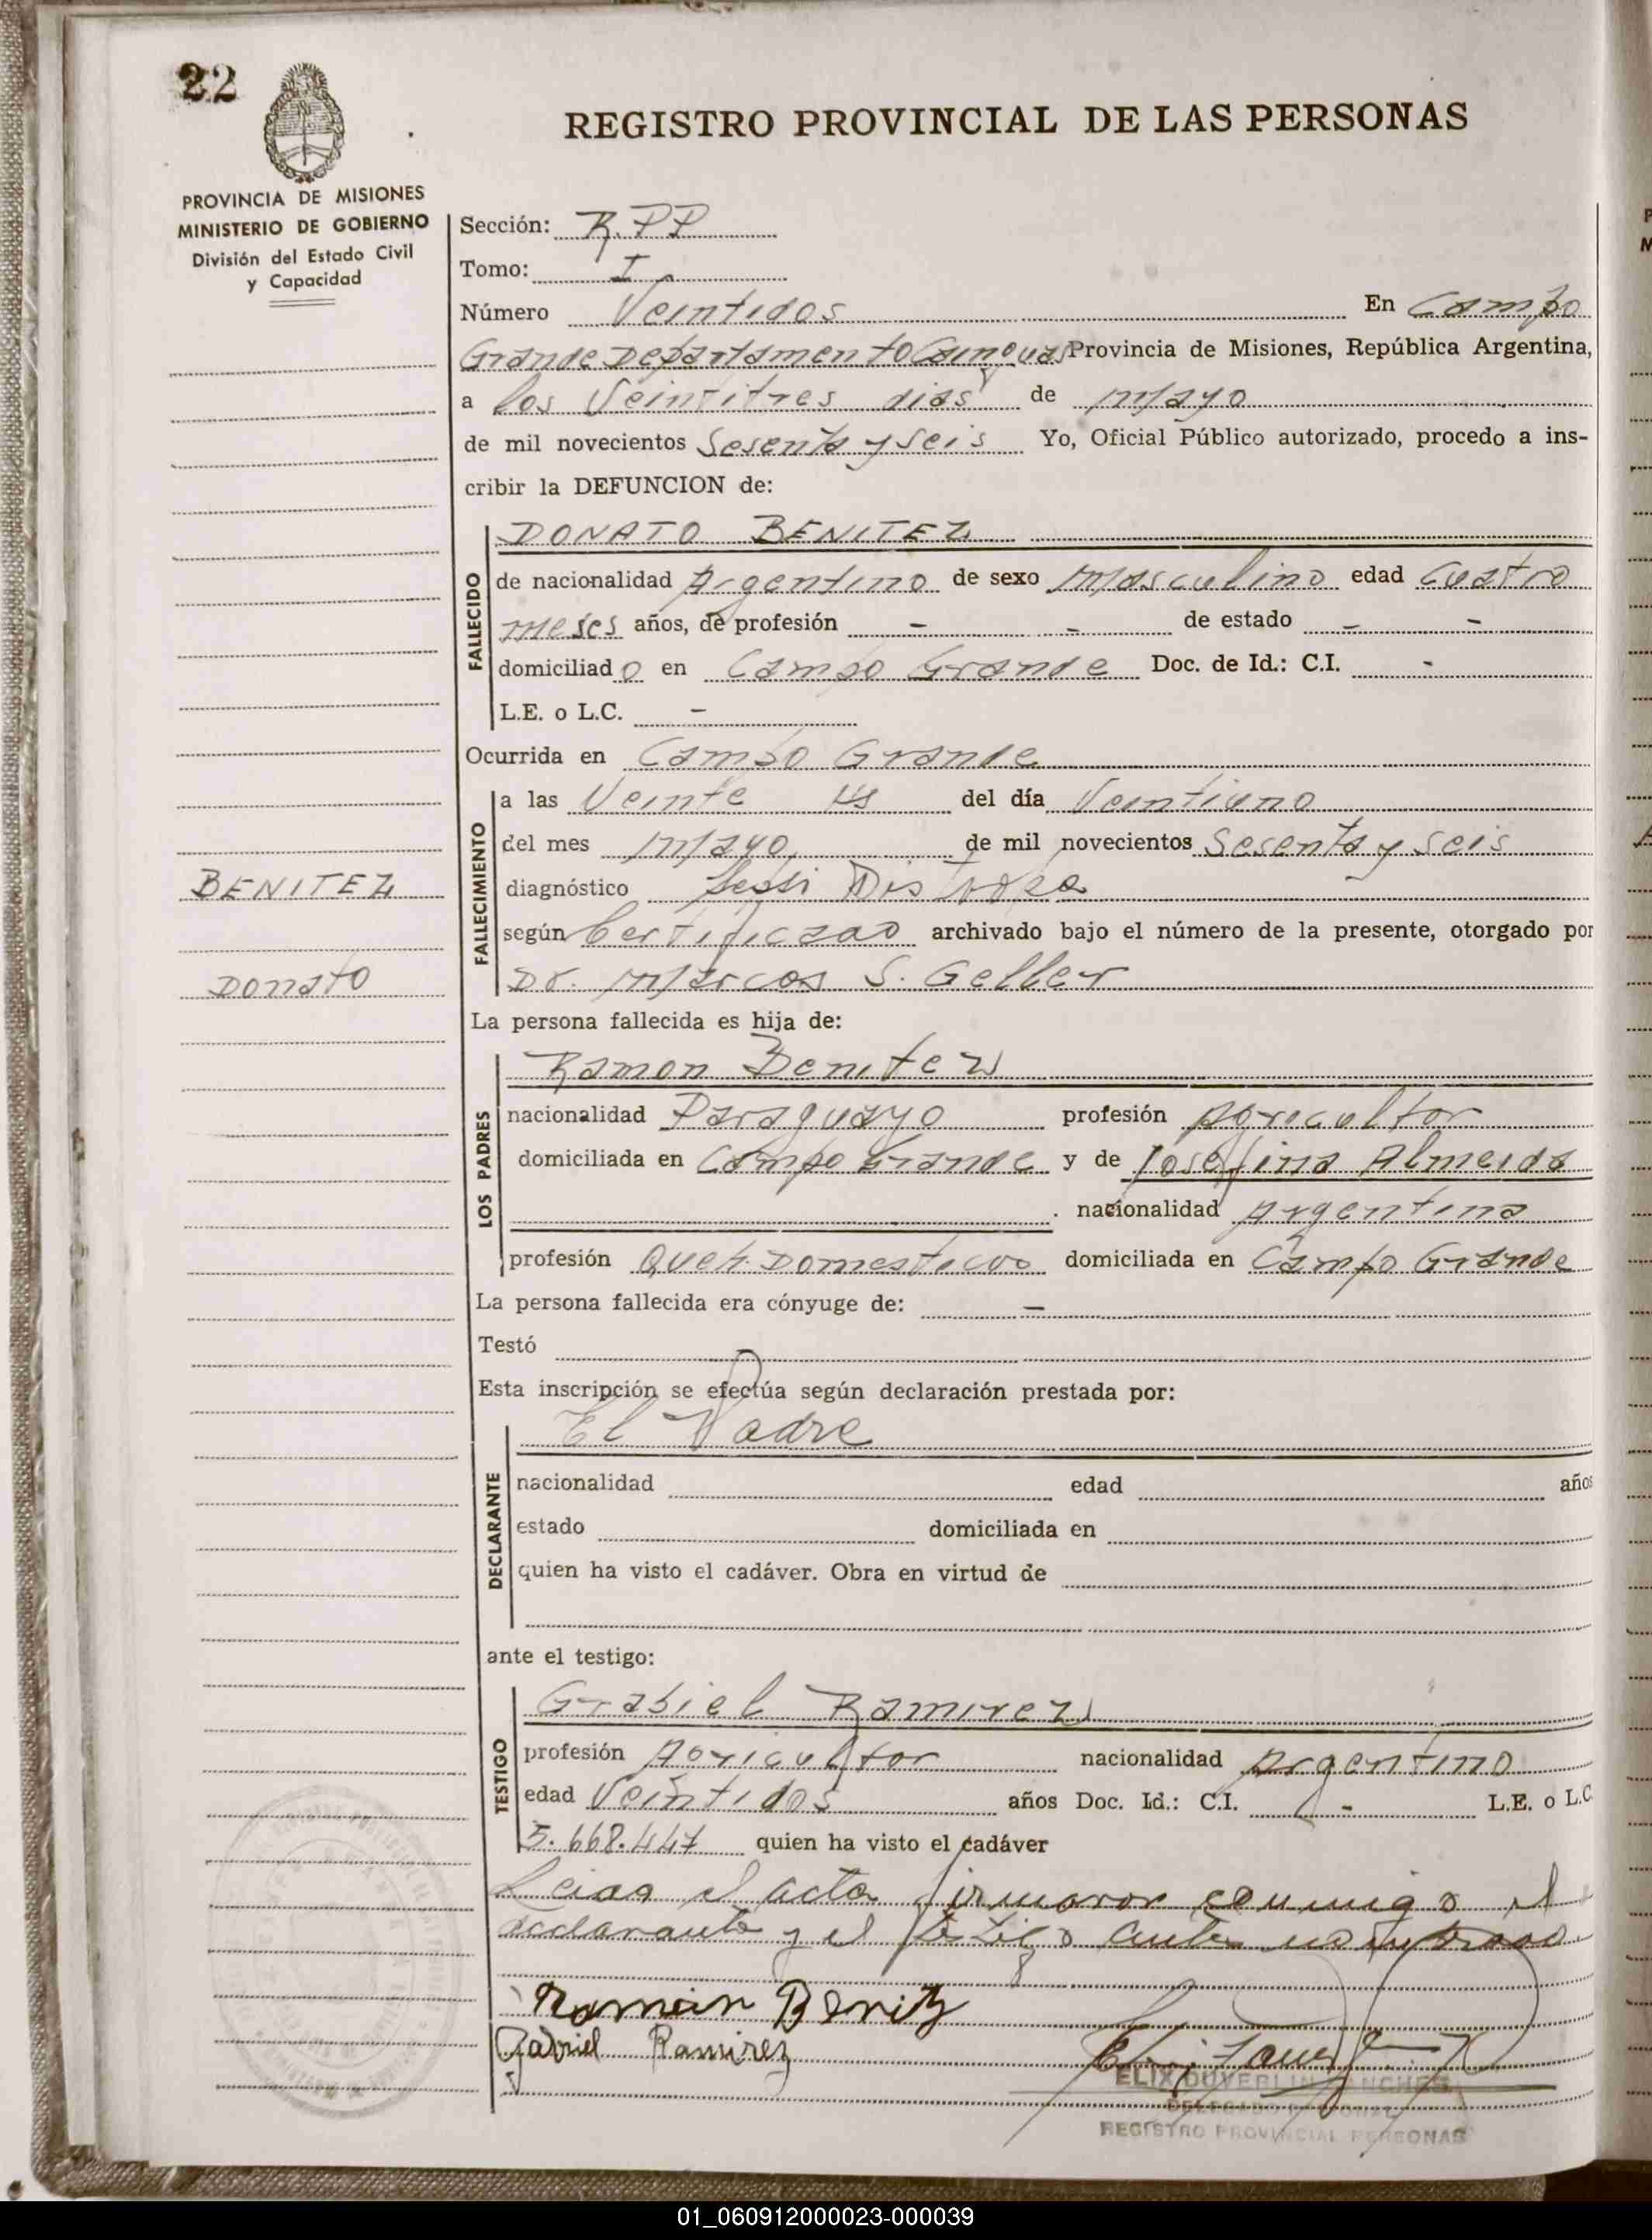 22
REGISTRO PROVINCIAL DE LAS PERSONAS
PROVINCIA DE MISIONES
MINISTERIO DE GOBIERNO
División del Estado Civil
y Capacidad
Sección: R.PP
Tomo: I
Número Veintidos En Campo
Grande Departamento Cainguas Provincia de Misiones, República Argentina,
a los Veintitres dias de mayo
de mil novecientos Sesenta y seis Yo, Oficial Público autorizado, procedo a ins-
cribir la DEFUNCION de:
FALLECIDO
DONATO BENITEZ
de nacionalidad Argentino de sexo masculino edad Cuatro
meses años, de profesión - - de estado - -
domiciliado en Campo Grande Doc. de Id.: C.I. -
L.E. o L.C. -
Ocurrida en Campo Grande
FALLECIMIENTO
a las Veinte Hs del día Veintiuno
del mes mayo de mil novecientos Sesenta y seis
BENITEZ
diagnóstico
según Certificado archivado bajo el número de la presente, otorgado por
Donato
Dr. Marcos S. Geller
La persona fallecida es hija de:
LOS PADRES
Ramon Benitez
nacionalidad Paraguayo profesión Agricultor
domiciliada en Campo Grande y de Josefina Almeida
nacionalidad Argentina
profesión Queh. Domesticos domiciliada en Campo Grande
La persona fallecida era cónyuge de: -
Testó
Esta inscripción se efectúa según declaración prestada por:
DECLARANTE
El Padre
nacionalidad edad años
estado domiciliada en
quien ha visto el cadáver. Obra en virtud de
ante el testigo:
TESTIGO
Grabiel Ramirez
profesión Agricultor nacionalidad Argentino
edad Veintidos años Doc. Id.: C.I. - L.E. o L.C.
5.668.447 quien ha visto el cadáver
Leida el acta firmaron conmigo el
declarante y el testigo antes nombrado
Ramón Benitz
Gabriel Ramirez
REGISTRO PROVINCIAL PERSONAS
01_060912000023-000039